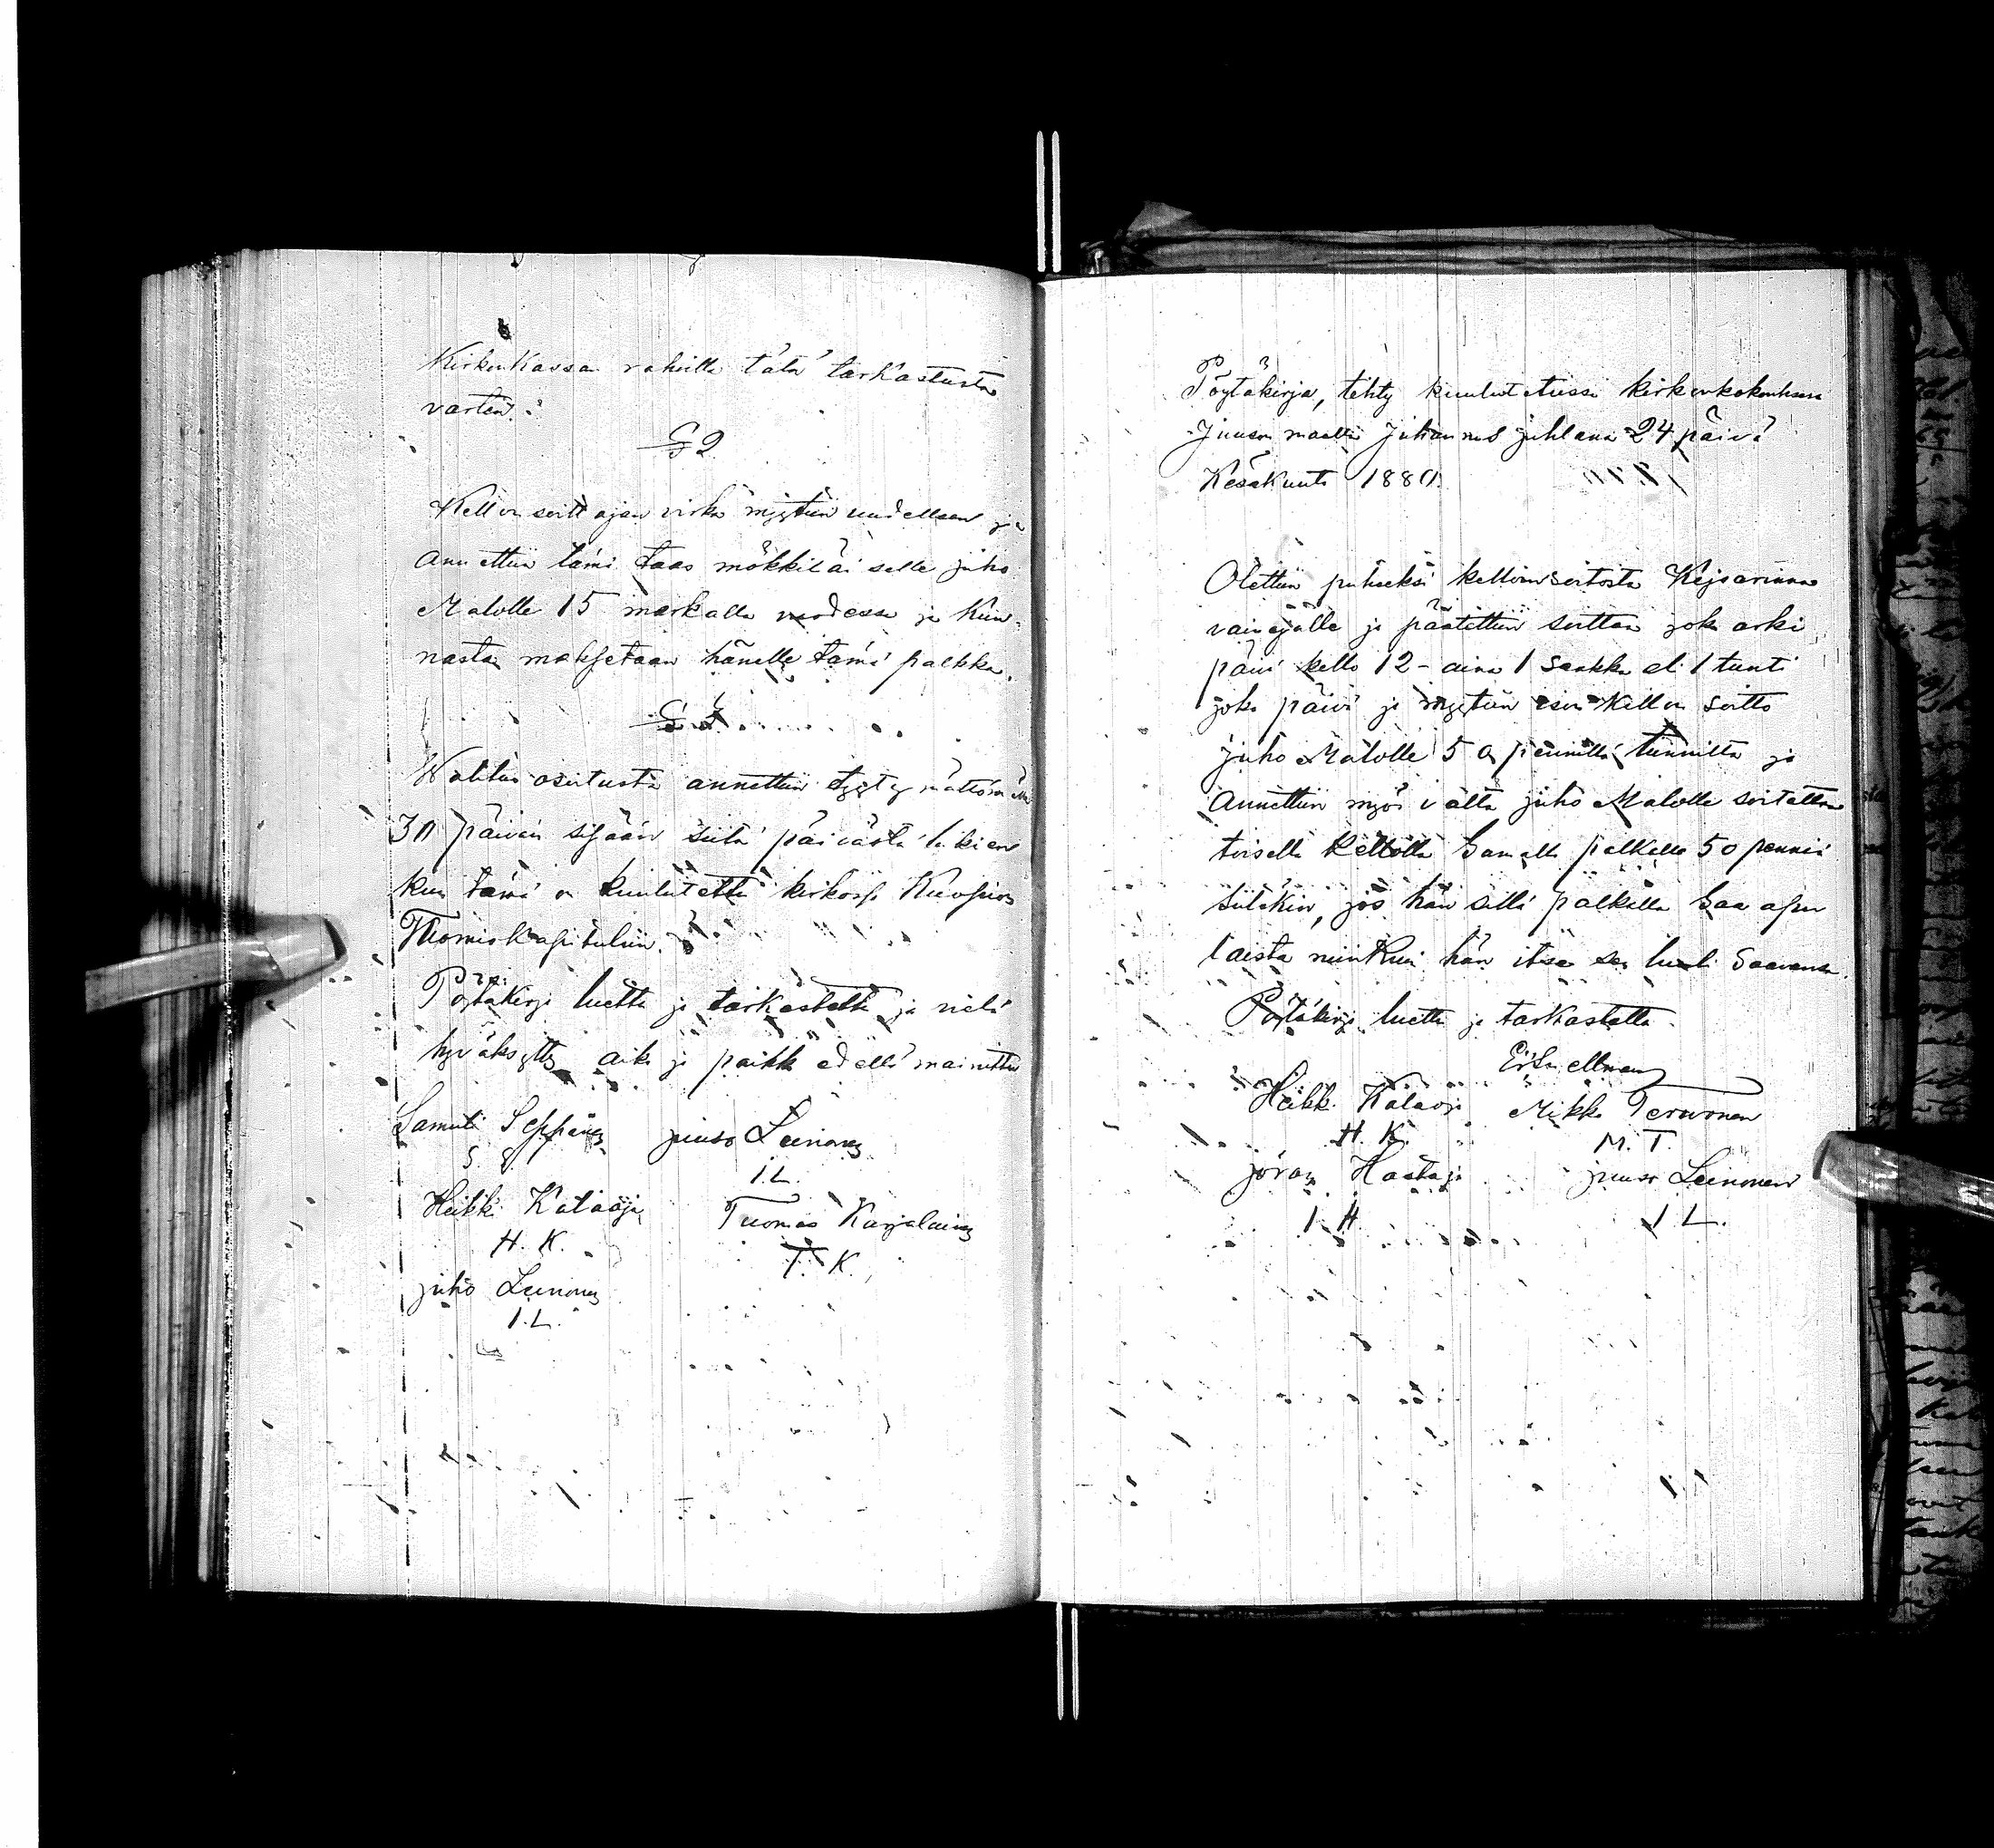 Kirkonkassan rahoilla tätä tarkastusta
varten.
§ 2
Kellon soittajan virka myytiin uudellaan ja
annettiin tämä taas mökkiläiselle juho
Malolle 15 markalla vuodessa ja Kun-
nasta maksetaan hänelle tämä palkka.
§
Walitus osoitusta annettiin tyytymättömille
30 päivän sisään siitä päivästä lukien
kun tämä on kuulutettu kirkossa Kuopion
Tuomiokapituliin.
Pöytäkirja luettu ja tarkastettu ja vielä
hyväksytty aika ja paikka edellä mainittu
Samuli Seppänen juuso Leinonen
S. S. I. L.
Heikki Kataoja Tuomas Karjalainen
H. K. T. K.
juho Leinonen
I. L.
Pöytäkirja, tehty kuulutetussa kirkonkokouksessa
Juuson maalla Juhannus juhlana 24 päivä
Kesäkuuta 1880.
Otettiin puheeksi kellonsoitosta Kejsarinna
vainajalle ja päätettiin soittaa joka arki
päivä kello 12 - aina 1 saakka eli 1 tunti
joka päivä ja myytiin ison Kellon soitto
Juho Malolle 50 pennillä tunnilta ja
annettiin myös valta juho Malolle soitattaa
toisella kellolla samalla palkalla 50 penniä
siitäkin, jos hän sillä palkalla saa apu
laista niinkuin hän itse sen luuli saavansa.
Pöytäkirja luettu ja tarkastettu.
E. Snellman
Heikki Kataoja Mikko Tervonen
H. K. M. T.
jöran Hastaja juuso Leinonen
I. H. I L.